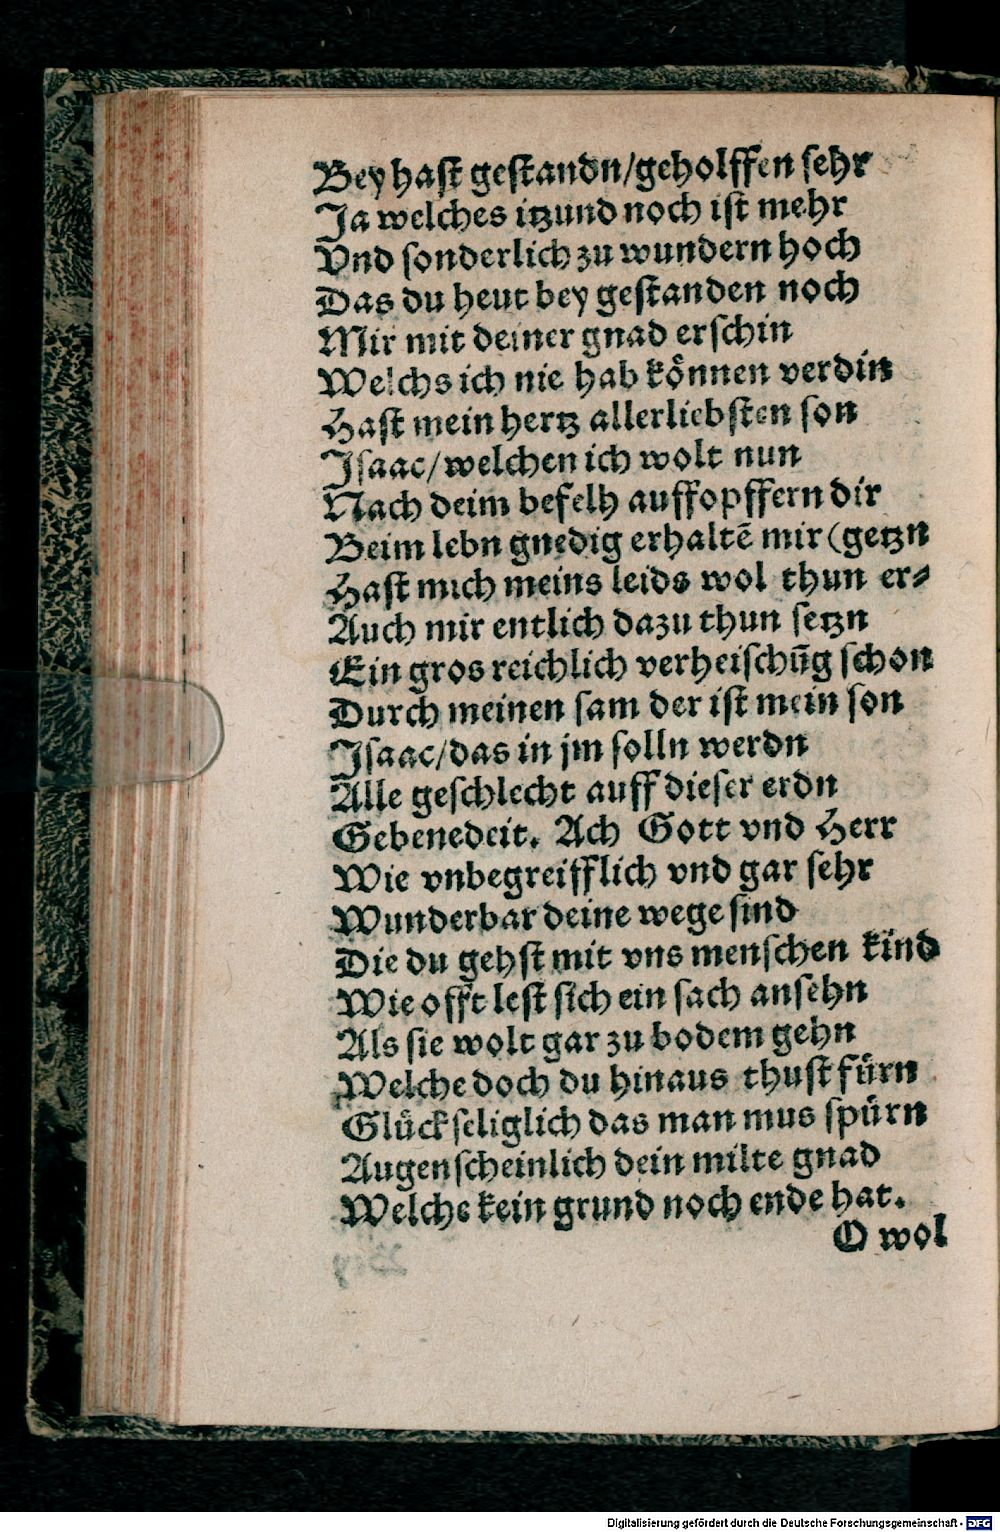 Bey hast gestandn/geholffen sehr
Ja welches itzund noch ist mehr
Vnd sonderlich zu wundern hoch
Das du heut bey gestanden noch
Mir mit deiner gnad erschin
Welchs ich nie hab können verdin
Hast mein hertz allerliebsten son
Jsaac/welchen ich wolt nun
Nach deim befelh auffopffern dir
Beim lebn gnedig erhaltē mir (getzn
Hast mich meins leids wol thun er⸗
Auch mir entlich dazu thun setzn
Ein gros reichlich verheischūg schon
Durch meinen sam der ist mein son
Jsaac/das in jm solln werdn
Alle geschlecht auff dieser erdn
Gebenedeit. Ach Gott vnd Herr
Wie vnbegreifflich vnd gar sehr
Wunderbar deine wege sind
Die du gehst mit vns menschen kind
Wie offt lest sich ein sach ansehn
Als sie wolt gar zu bodem gehn
Welche doch du hinaus thust fürn
Glückseliglich das man mus spürn
Augenscheinlich dein milte gnad
Welche kein grund noch ende hat.
O wol
Digitalisierung gefördert durch die Deutsche Forschungsgemeinschaft - DFG